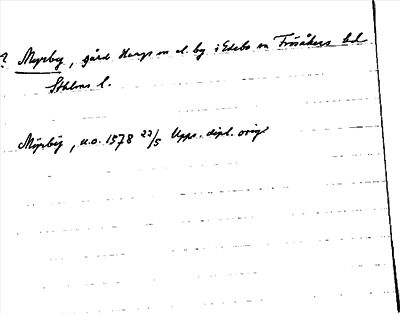 ? Myrby, gård Hargs sn el. by i Edebo sn Frösåkers hd
Sthlms l.
Mÿrbÿ, u.o. 1578 23/5 Upps. dipl. orig